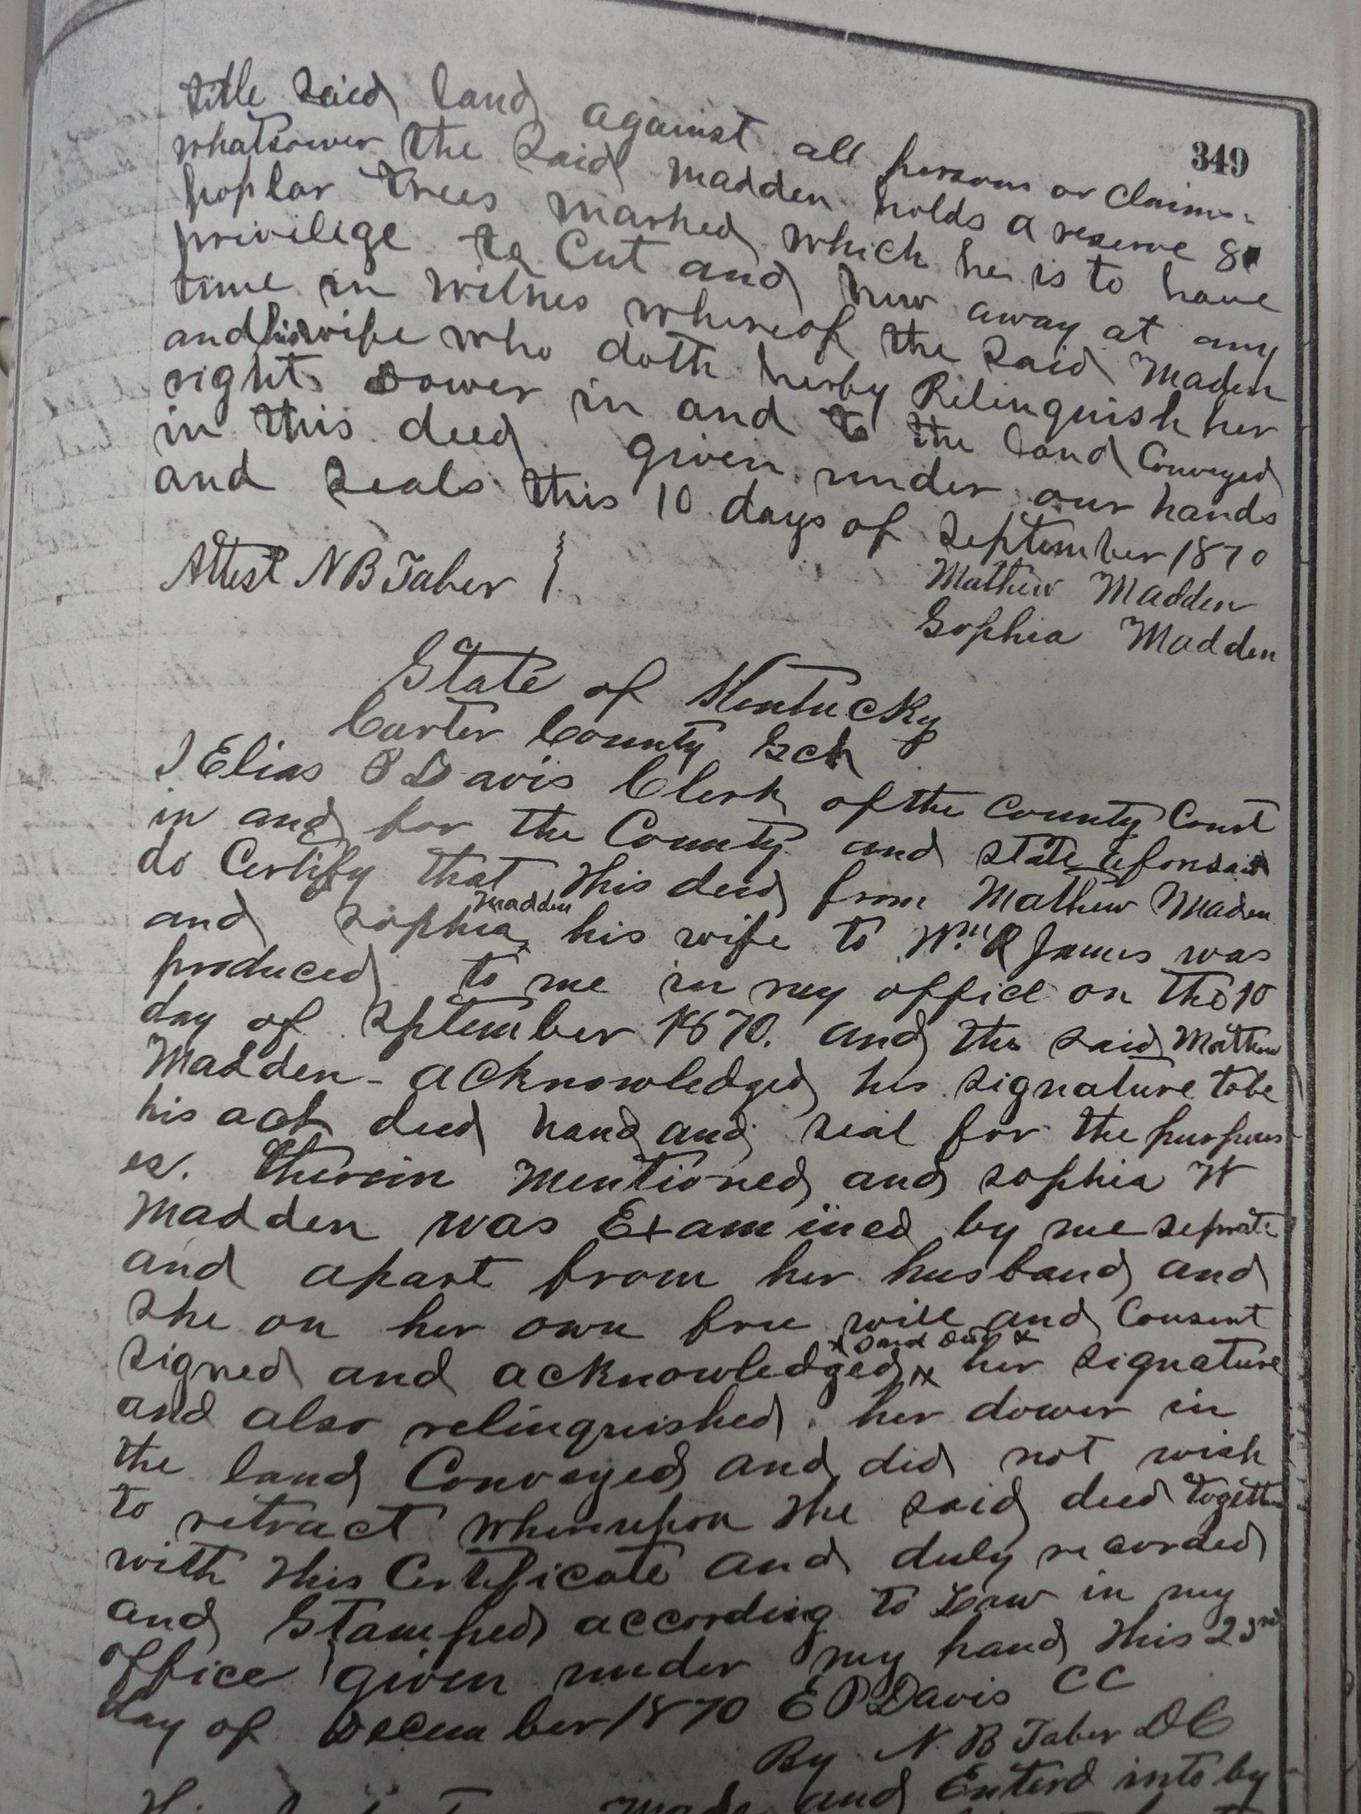 349
title said land against all persons or claims
whatsower the said Madden holds a reserve 80
poplar trees marked which he is to have
privilige to Cut and hew away at any
time in witness whereof the said Maden
and his wife who doth herby Relinguish her
right Dower in and to the land Conveyed
in this deed given under our hands
and Seals this 10 days of September 1870
Attest N B Taber
Mathew Madden
Sophia Madden
State of Kentucky
Carter County Sct
I Elias P Davis Clerk of the County Court
in and for the County and state aforsaid
do Certify that this deed from Mathew Maden
and Sophia Madden his wife to Wm R James was
produced to me in my office on the 10
day of Sptember 1870. and the said Mathew
Madden - acknowledged his signature to be
his act deed hand and seal for the purpous
es. therein mentioned and sophia W
Madden was Examined by me seprate
and apart from her husband and
she on her own free will and Consent
x said deed x
signed and acknowledged x her signature
and also relinguished her dower in
the land Conveyed and did not wish
to retract whereupon the said deed together
with this Certificate and duly recorded
and Stamped according to Law in my
office given under my hand this 23rd
day of December 1870 E P Davis CC
By N. B Taber DC
made and Enterd into by